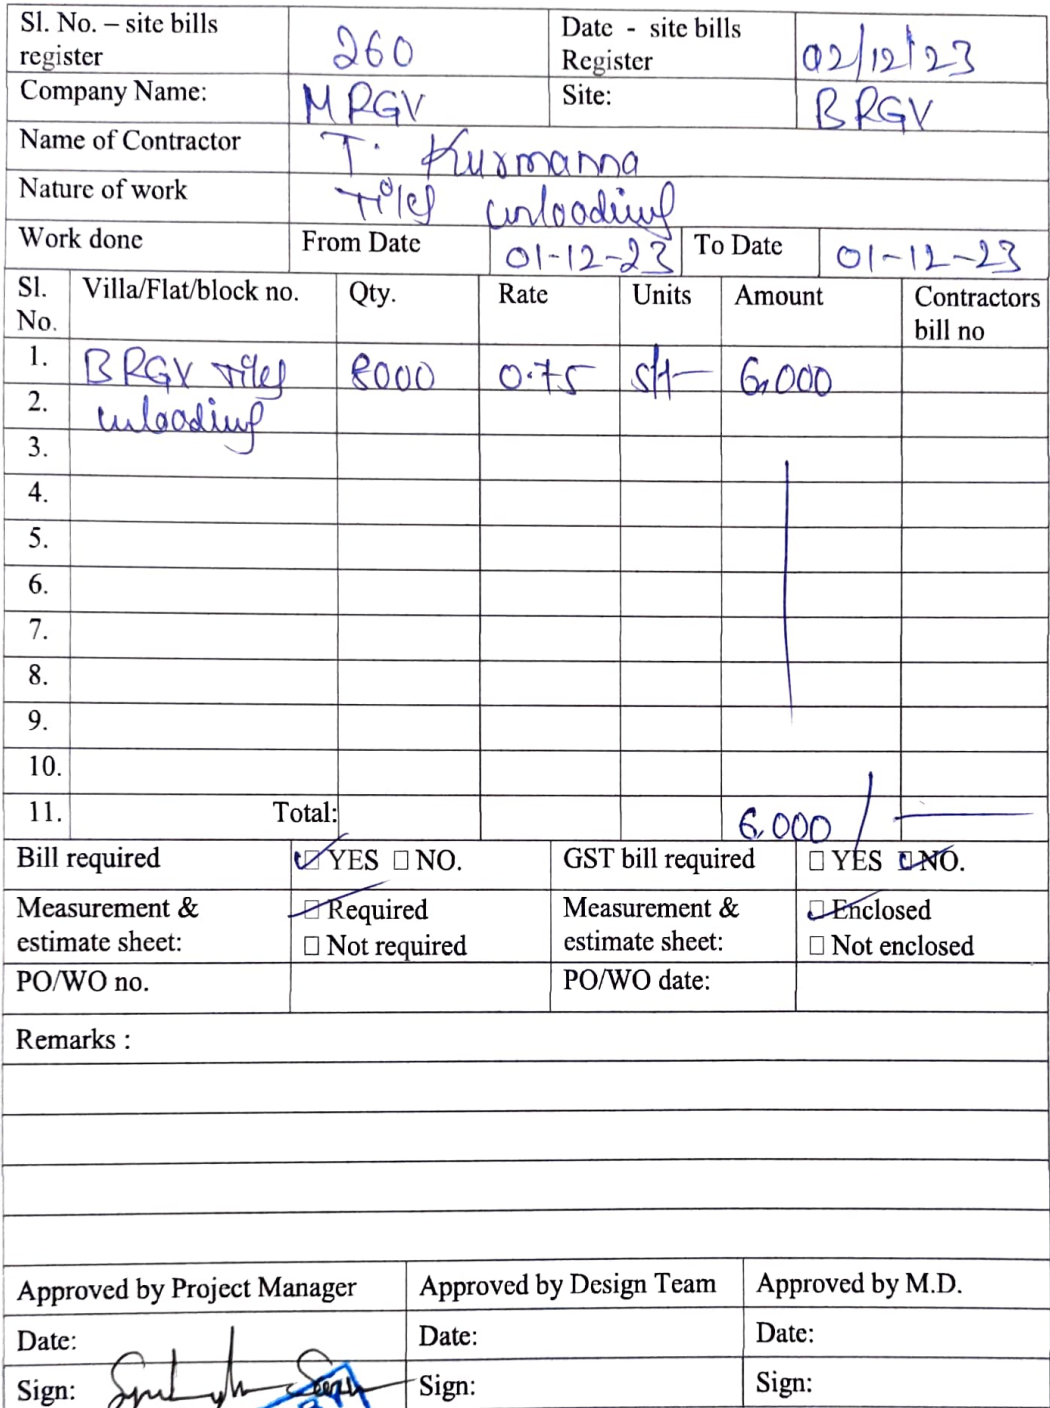 Sl. No. – site bills register 260 Date - site bills Register 02/12/23
Company Name: MRGV Site: BRGV
Name of Contractor T. Kurmanna
Nature of work Tiles unloading
Work done From Date 01-12-23 To Date 01-12-23
Sl. No. Villa/Flat/block no. Qty. Rate Units Amount Contractors bill no
1. BRGV Tiles 8000 0.75 sft 6,000
2. unloading
3.
4.
5.
6.
7.
8.
9.
10.
11. Total: 6,000
Bill required ☑ YES ☐ NO. GST bill required ☐ YES ☑ NO.
Measurement & estimate sheet: ☑ Required ☐ Not required Measurement & estimate sheet: ☑ Enclosed ☐ Not enclosed
PO/WO no. PO/WO date:
Remarks :
Approved by Project Manager Approved by Design Team Approved by M.D.
Date: Date: Date:
Sign: Sign: Sign: